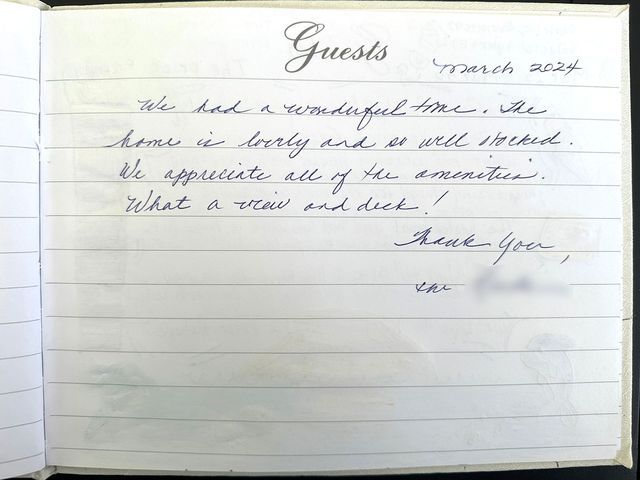 Guests
March 2024
We had a wonderful time. The
home is lovely and so well stocked.
We appreciate all of the amenities.
What a view and deck!
Thank You,
the